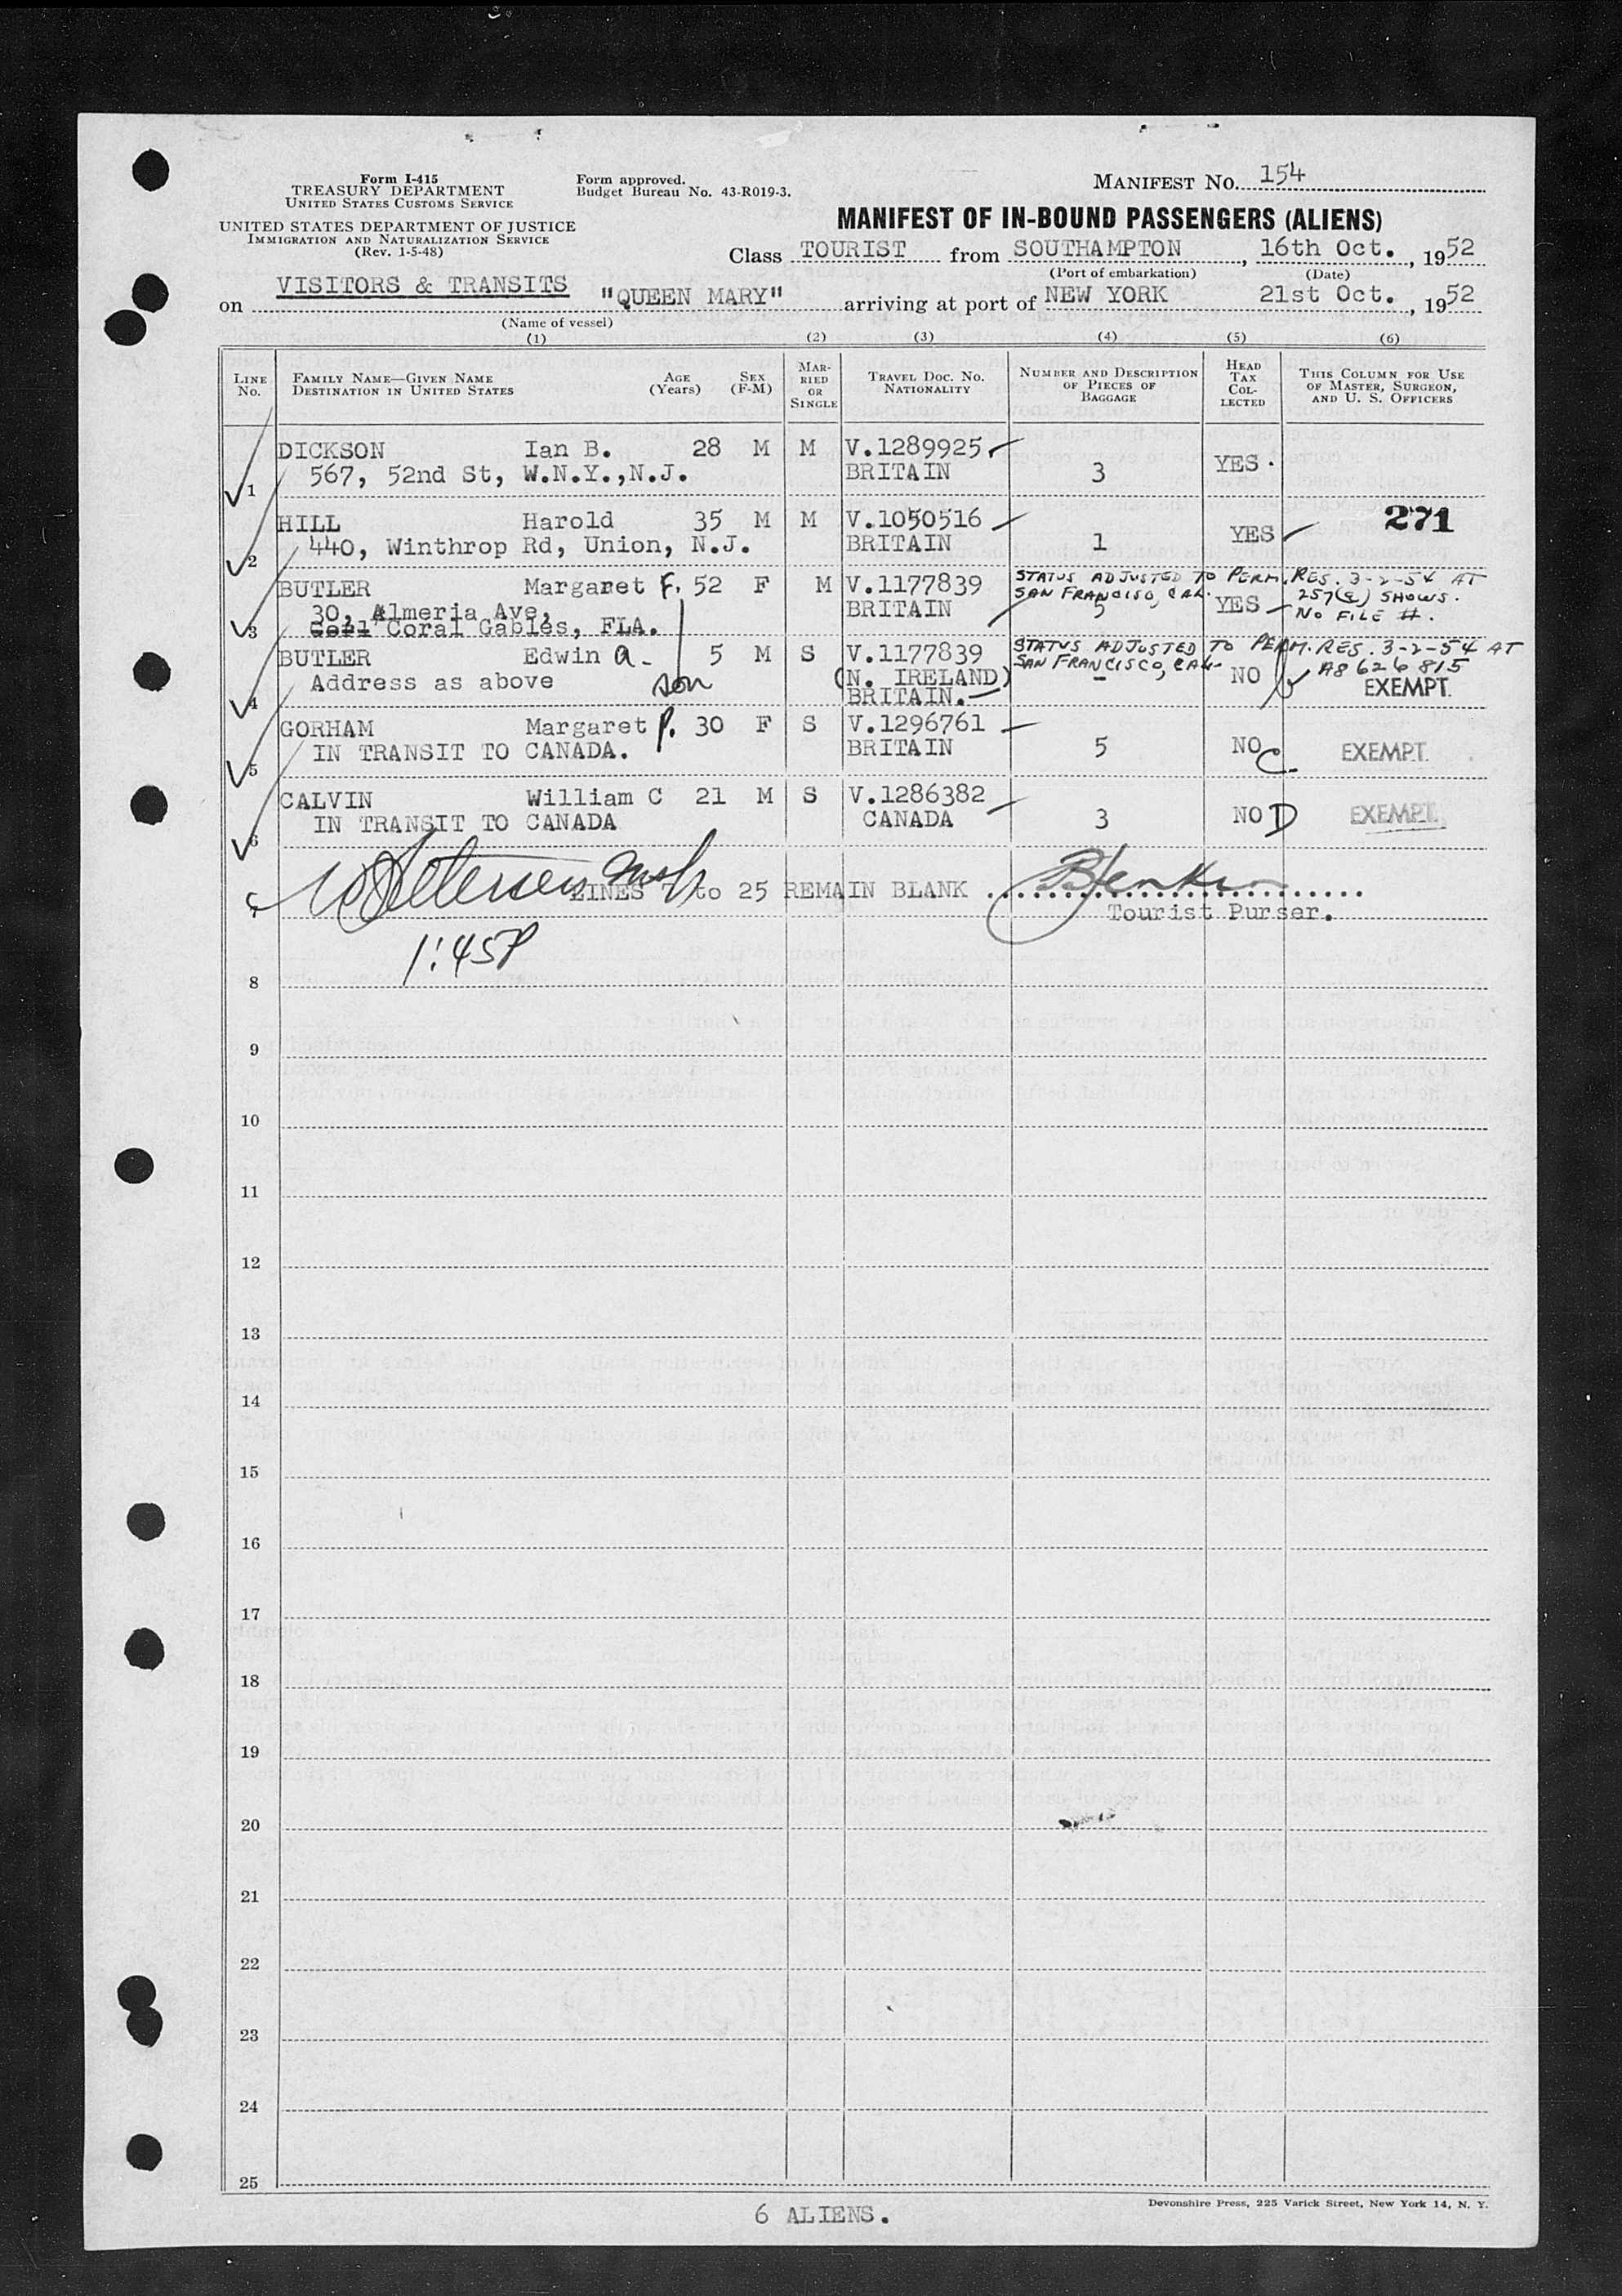 Form I-415
TREASURY DEPARTMENT
UNITED STATES CUSTOMS SERVICE
UNITED STATES DEPARTMENT OF JUSTICE
IMMIGRATION AND NATURALIZATION SERVICE
(Rev. 1-5-48)
Form approved.
Budget Bureau No. 43-R019-3.
MANIFEST NO. 154
MANIFEST OF IN-BOUND PASSENGERS (ALIENS)
Class TOURIST from SOUTHAMPTON, 16th Oct., 1952
(Port of embarkation) (Date)
VISITORS & TRANSITS
on "QUEEN MARY" arriving at port of NEW YORK 21st Oct., 1952
(Name of vessel)
(1) (2) (3) (4) (5) (6)
LINE No. FAMILY NAME—GIVEN NAME DESTINATION IN UNITED STATES AGE (Years) SEX (F-M) MARRIED OR SINGLE TRAVEL DOC. NO. NATIONALITY NUMBER AND DESCRIPTION OF PIECES OF BAGGAGE HEAD TAX COLLECTED THIS COLUMN FOR USE OF MASTER, SURGEON, AND U. S. OFFICERS
DICKSON Ian B. 28 M M V.1289925
1 567, 52nd St, W.N.Y.,N.J. BRITAIN 3 YES.
HILL Harold 35 M M V.1050516 271
2 440, Winthrop Rd, Union, N.J. BRITAIN 1 YES
BUTLER Margaret F. 52 F M V.1177839 STATUS ADJUSTED TO PERM. RES. 3-2-54 AT
30, Almeria Ave, BRITAIN SAN FRANCISO, CAL. 5 YES 257(a) SHOWS.
3 Coral Gables, FLA. NO FILE #.
BUTLER Edwin A. 5 M S V.1177839 STATUS ADJUSTED TO PERM. RES. 3-2-54 AT
4 Address as above son (N. IRELAND) SAN FRANCISCO, CAL. - NO A8 626 815
BRITAIN. EXEMPT.
GORHAM Margaret P. 30 F S V.1296761
5 IN TRANSIT TO CANADA. BRITAIN 5 NO C EXEMPT.
CALVIN William C 21 M S V.1286382
6 IN TRANSIT TO CANADA CANADA 3 NO D EXEMPT.
7 LINES 7 to 25 REMAIN BLANK
Tourist Purser.
1:45P
8
9
10
11
12
13
14
15
16
17
18
19
20
21
22
23
24
25
6 ALIENS.
Devonshire Press, 225 Varick Street, New York 14, N. Y.